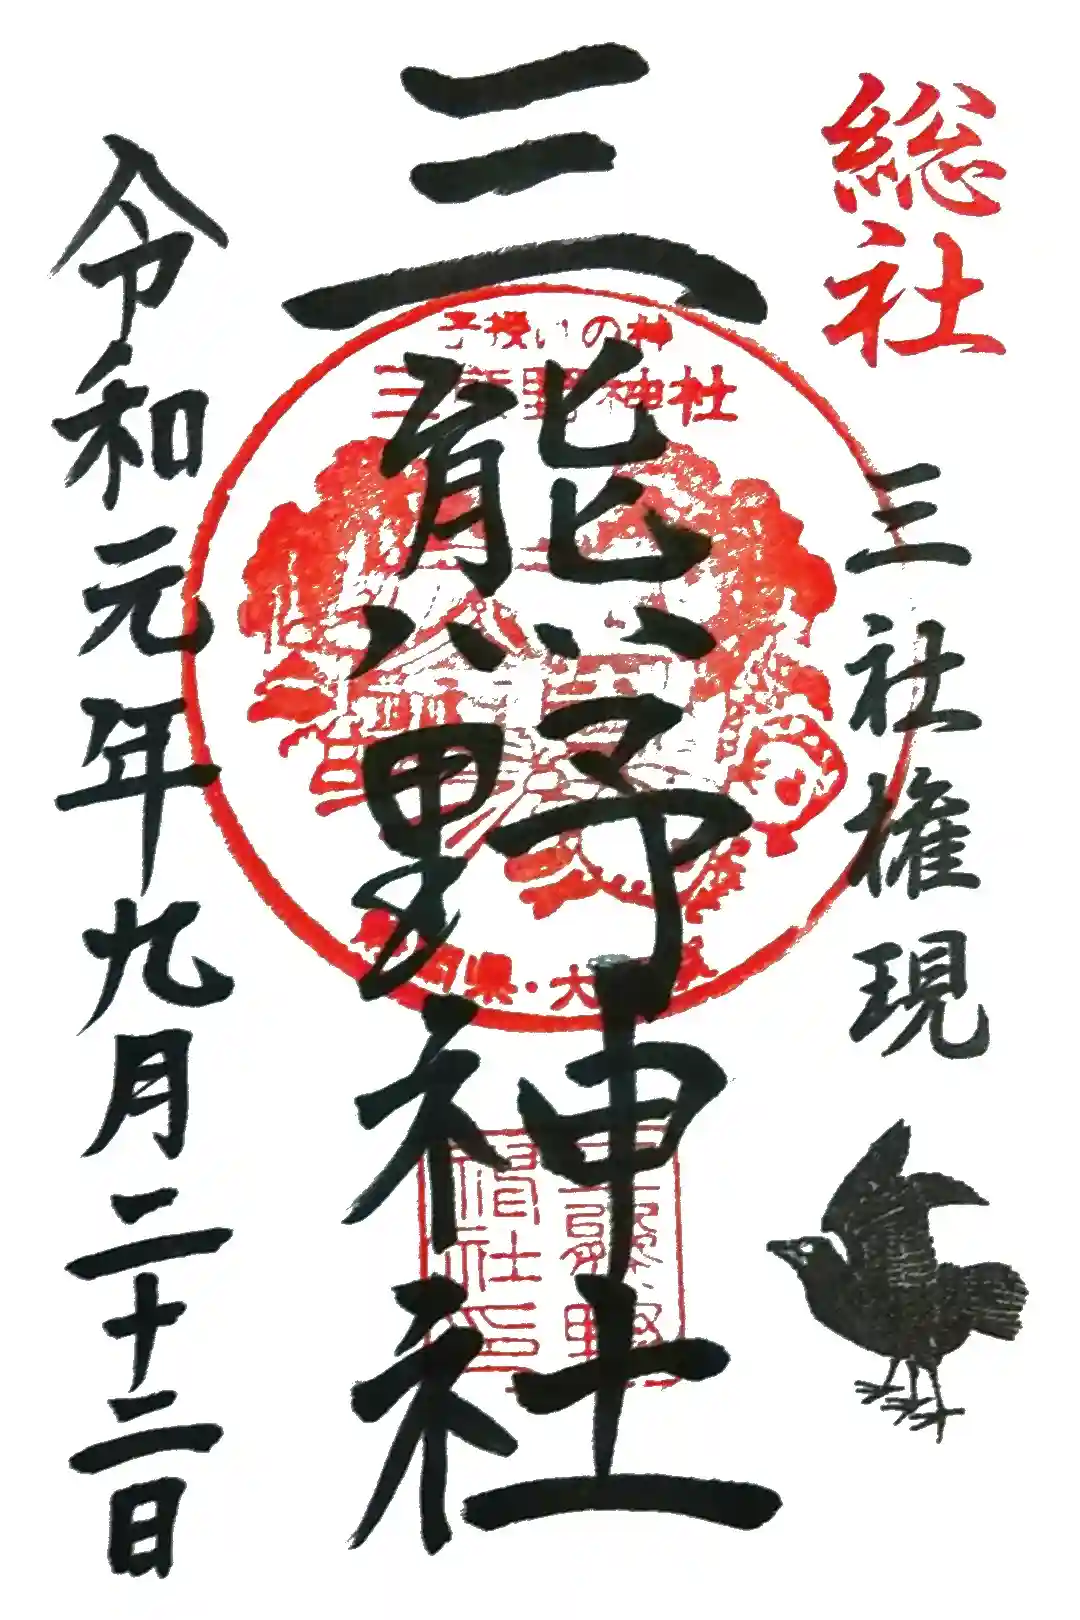 総社
三社権現
三熊野神社
子授けの神
三熊野神社
岡県・大
三熊野
神社印
令和元年九月二十二日